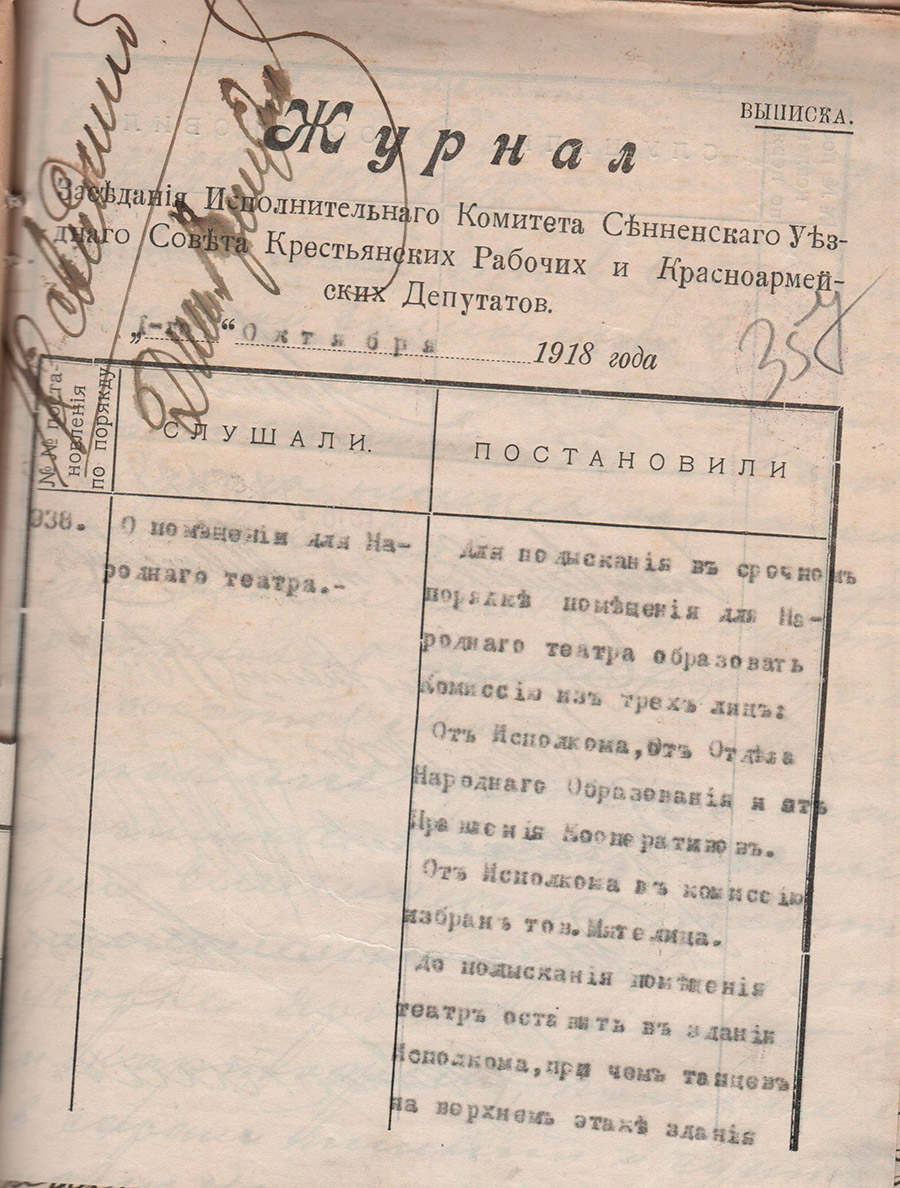 ВЫПИСКА.
Журнал
Засѣданія Исполнительнаго Комитета Сѣнненскаго Уѣз-
днаго Совѣта Крестьянских Рабочих и Красноармей-
ских Депутатов.
„1-го“ Октября 1918 года
354
№№ поста-
новленія
по порядку
СЛУШАЛИ.
ПОСТАНОВИЛИ
938.
О помѣщеніи для На-
роднаго театра.-
Для подысканія въ срочномъ
порядкѣ помѣщенія для На-
роднаго театра образовать
Комиссію изъ трехъ лицъ:
Отъ Исполкома, Отъ Отдѣла
Народнаго Образованія и отъ
Правленія Кооперативовъ.
Отъ Исполкома въ комиссію
избранъ тов. Мятелица.
До подысканія помѣщенія
театръ оставить въ зданіи
Исполкома, при чемъ танцевъ
на верхнемъ этажѣ зданія